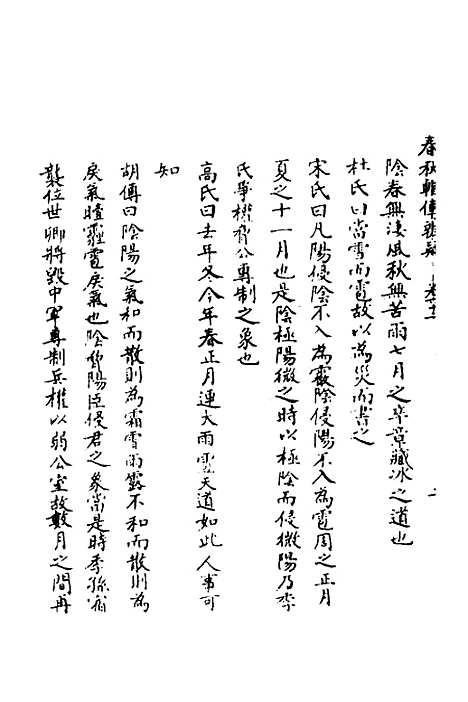 春秋輯傳辨疑 卷
陰春無淒風秋無苦雨七月之卒章藏冰之道也
杜氏曰當雪而雹故以為災而書之
宋氏曰凡陽侵陰不入為霰陰侵陽不入為雹周之正月
夏之十一月也是陰極陽微之時以極陰而侵微陽乃季
氏爭權脅公專制之象也
高氏曰去年冬今年春正月連大雨雹天道如此人事可
知
胡傳曰陰陽之氣和而散則為霜雪雨露不和而散則為
戾氣曀霾雹戾氣也陰脅陽臣侵君之象當是時季孫宿
襲位世卿將毀中軍專制兵權以弱公室故數月之間再